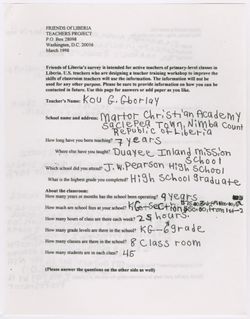 FRIENDS OF LIBERIA
TEACHERS PROJECT
P.O Box 28098
Washington, D.C. 20016
March 1998
Friends of Liberia's survey is intended for active teachers of primary-level classes in
Liberia. U.S. teachers who are designing a teacher training workshop to improve the
skills of classroom teachers will use the information. The information will not be
used for any other purpose. Please be sure to provide information on how you can be
contacted in future. Use this page for answers or add paper as you like.
Teacher's Name: Kou G. Gborlay
School name and address: Martor Christian Academy
Saclepea Town, Nimba Count
Republic of Liberia
How long have you been teaching? 7 years
Where else have you taught? Duayee Inland mission
School
Which school did you attend? J.W. Pearson High School
What is the highest grade you completed? High School graduate
About the classroom:
How many years or months has the school been operating? 9 years
How much are school fees at your school? KG-section
How many hours of class are there each week? 25 hours.
How many grade levels are there in the school? KG-6 grade
How many classes are there in the school? 8 Class room
How many students are in each class? 45
(Please answer the questions on the other side as well)